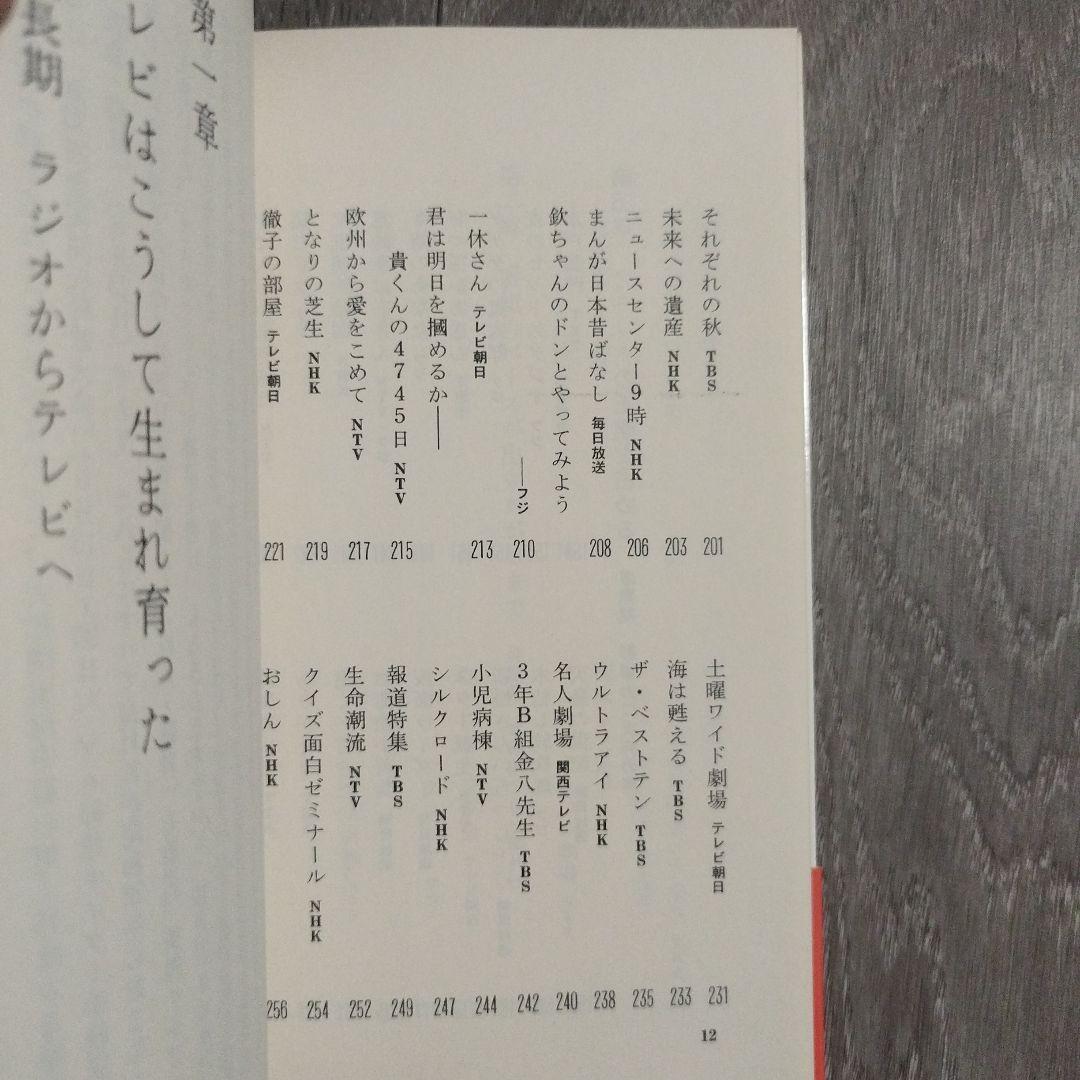 それぞれの秋 TBS 201
未来への遺産 NHK 203
ニュースセンター9時 NHK 206
まんが日本昔ばなし 毎日放送 208
欽ちゃんのドンとやってみよう
――フジ 210
一休さん テレビ朝日 213
君は明日を摑めるか――
貴くんの4745日 NTV 215
欧州から愛をこめて NTV 217
となりの芝生 NHK 219
徹子の部屋 テレビ朝日 221
土曜ワイド劇場 テレビ朝日 231
海は甦える TBS 233
ザ・ベストテン TBS 235
ウルトラアイ NHK 238
名人劇場 関西テレビ 240
3年B組金八先生 TBS 242
小児病棟 NTV 244
シルクロード NHK 247
報道特集 TBS 249
生命潮流 NTV 252
クイズ面白ゼミナール NHK 254
おしん NHK 256
12
第一章
レビはこうして生まれ育った
長期 ラジオからテレビへ